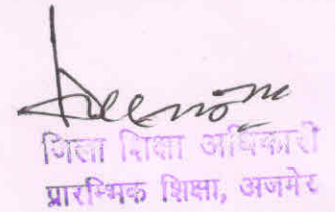 जिला शिक्षा अधिकारी
प्रारम्भिक शिक्षा, अजमेर